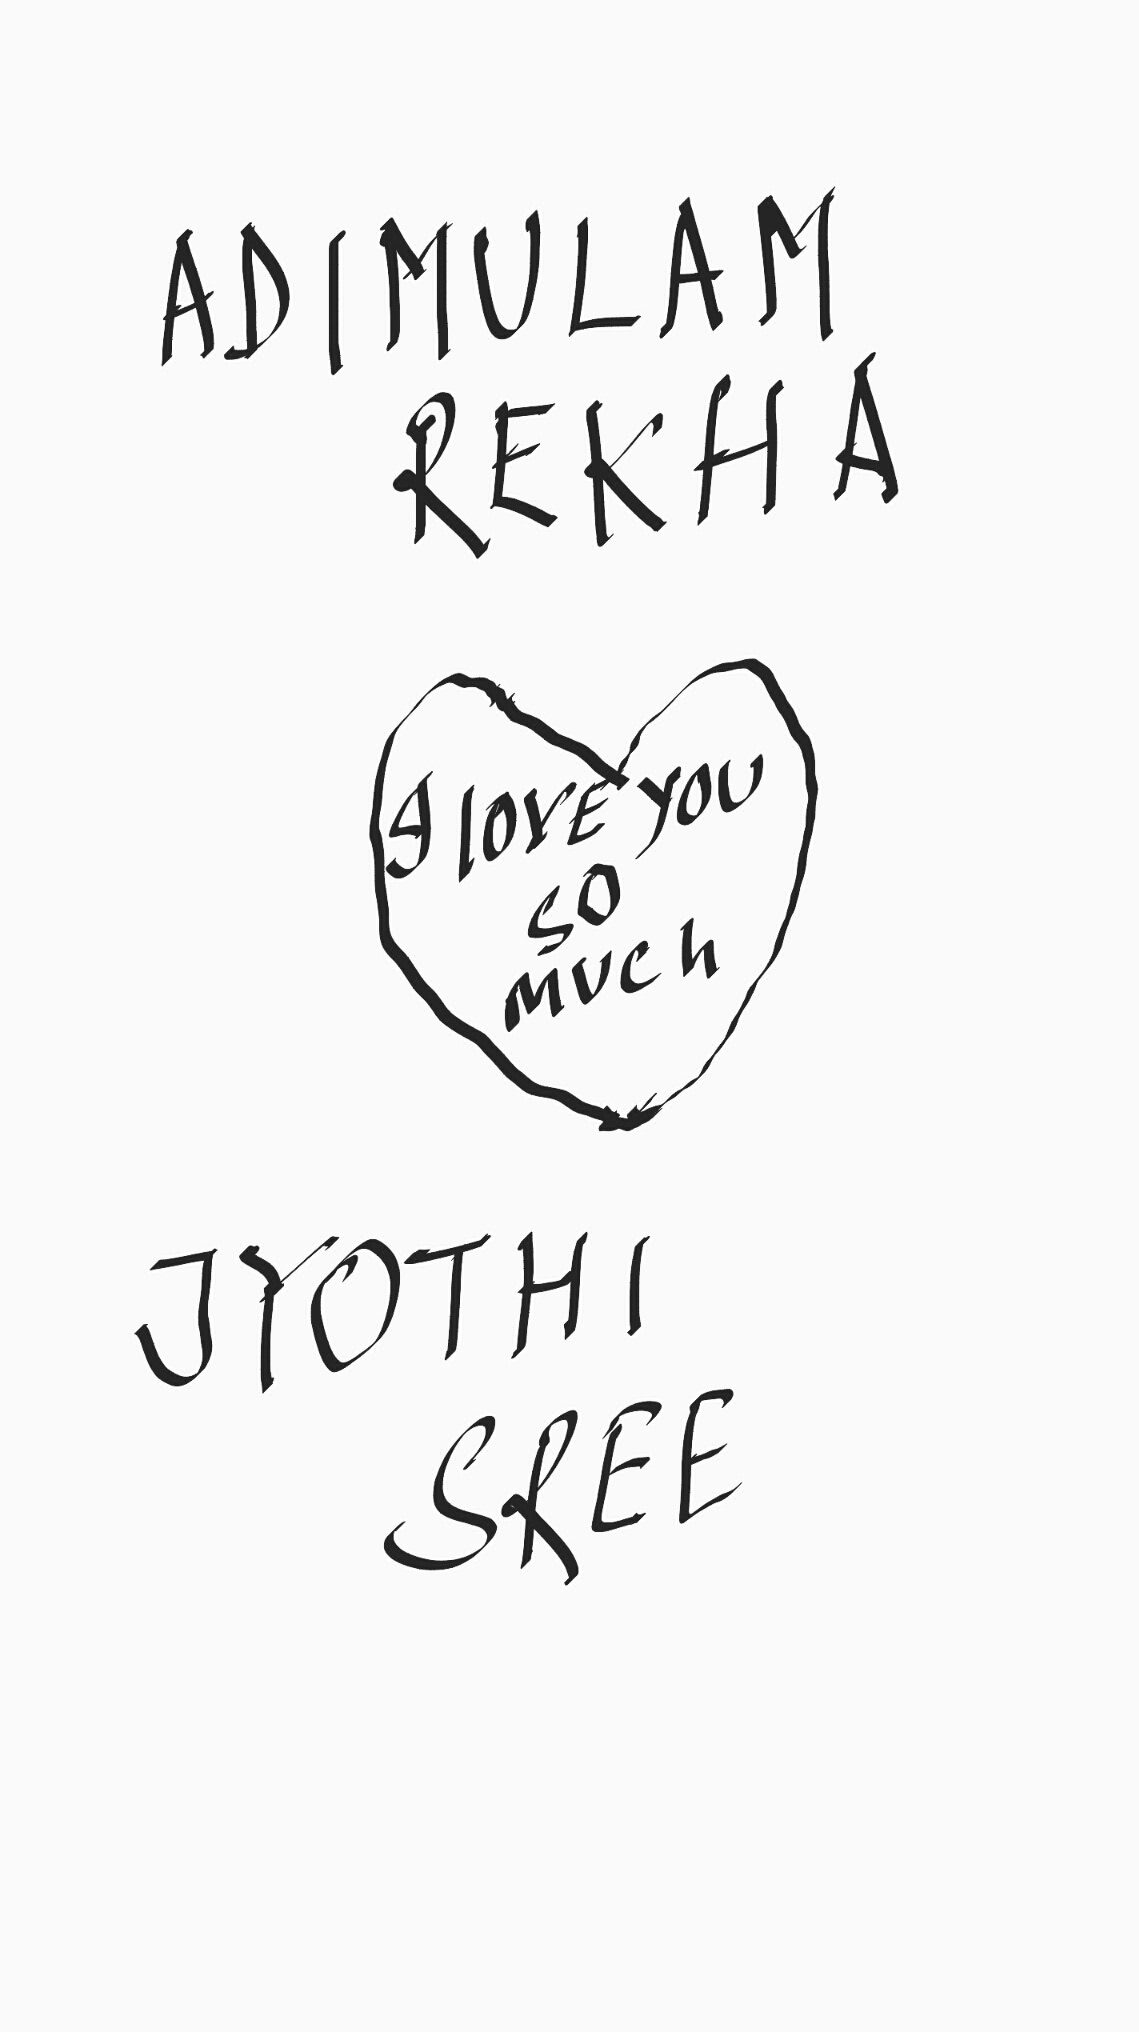 ADIMULAM
REKHA
I lOVE YOU
SO
MUCh
JYOTHI
SREE